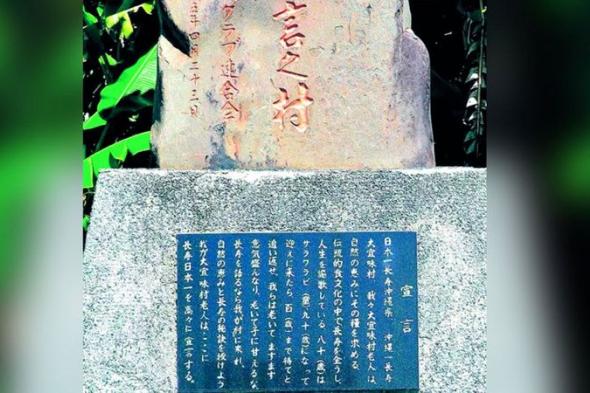 言之村
クラブ連合会
年四月二十三日
宣言
日本一長寿沖縄県 沖縄一長寿
大宜味村 我々大宜味村老人は、
自然の恵みにその糧を求める
伝統的食文化の中で長寿を全うし、
人生を謳歌している。八十(歳)は
サラワラビ(童)、九十(歳)になって
迎えに来たら、百(歳)まで待てと
追い返せ、我らは老いてますます
意気盛んなり、老いて子に甘えるな、
長寿を語るなら我が村に来れ、
自然の恵みと長寿の秘訣を授けよう
我が大宜味村老人は、ここに
長寿日本一を高々に宣言する。